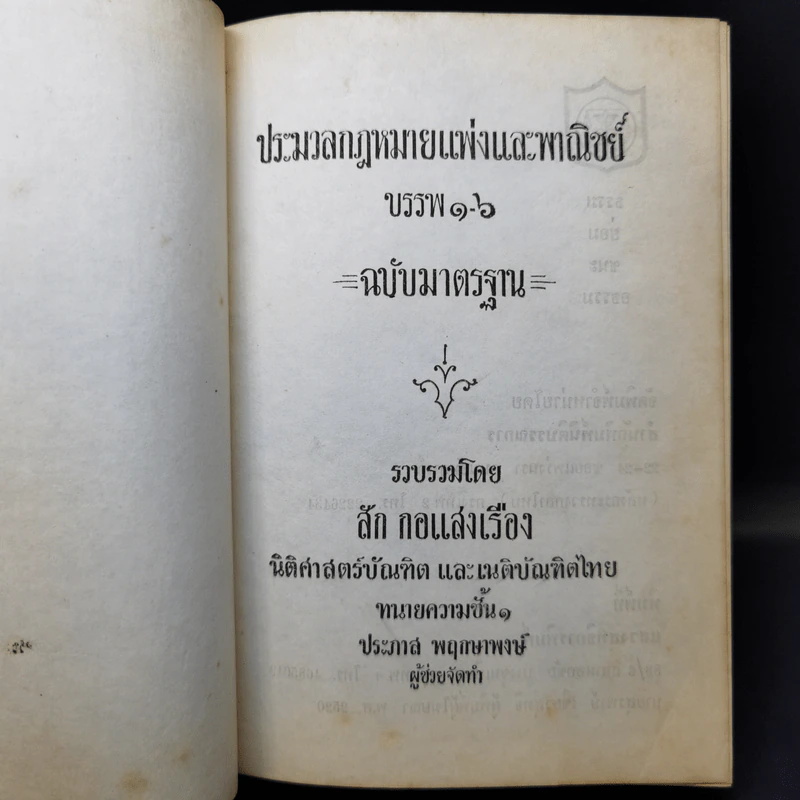 ประมวลกฎหมายแพ่งและพาณิชย์
บรรพ ๑-๖
ฉบับมาตรฐาน
รวบรวมโดย
สัก กอแสงเรือง
นิติศาสตร์บัณฑิต และเนติบัณฑิตไทย
ทนายความชั้น ๑
ประภาส พฤกษาพงษ์
ผู้ช่วยจัดทำ